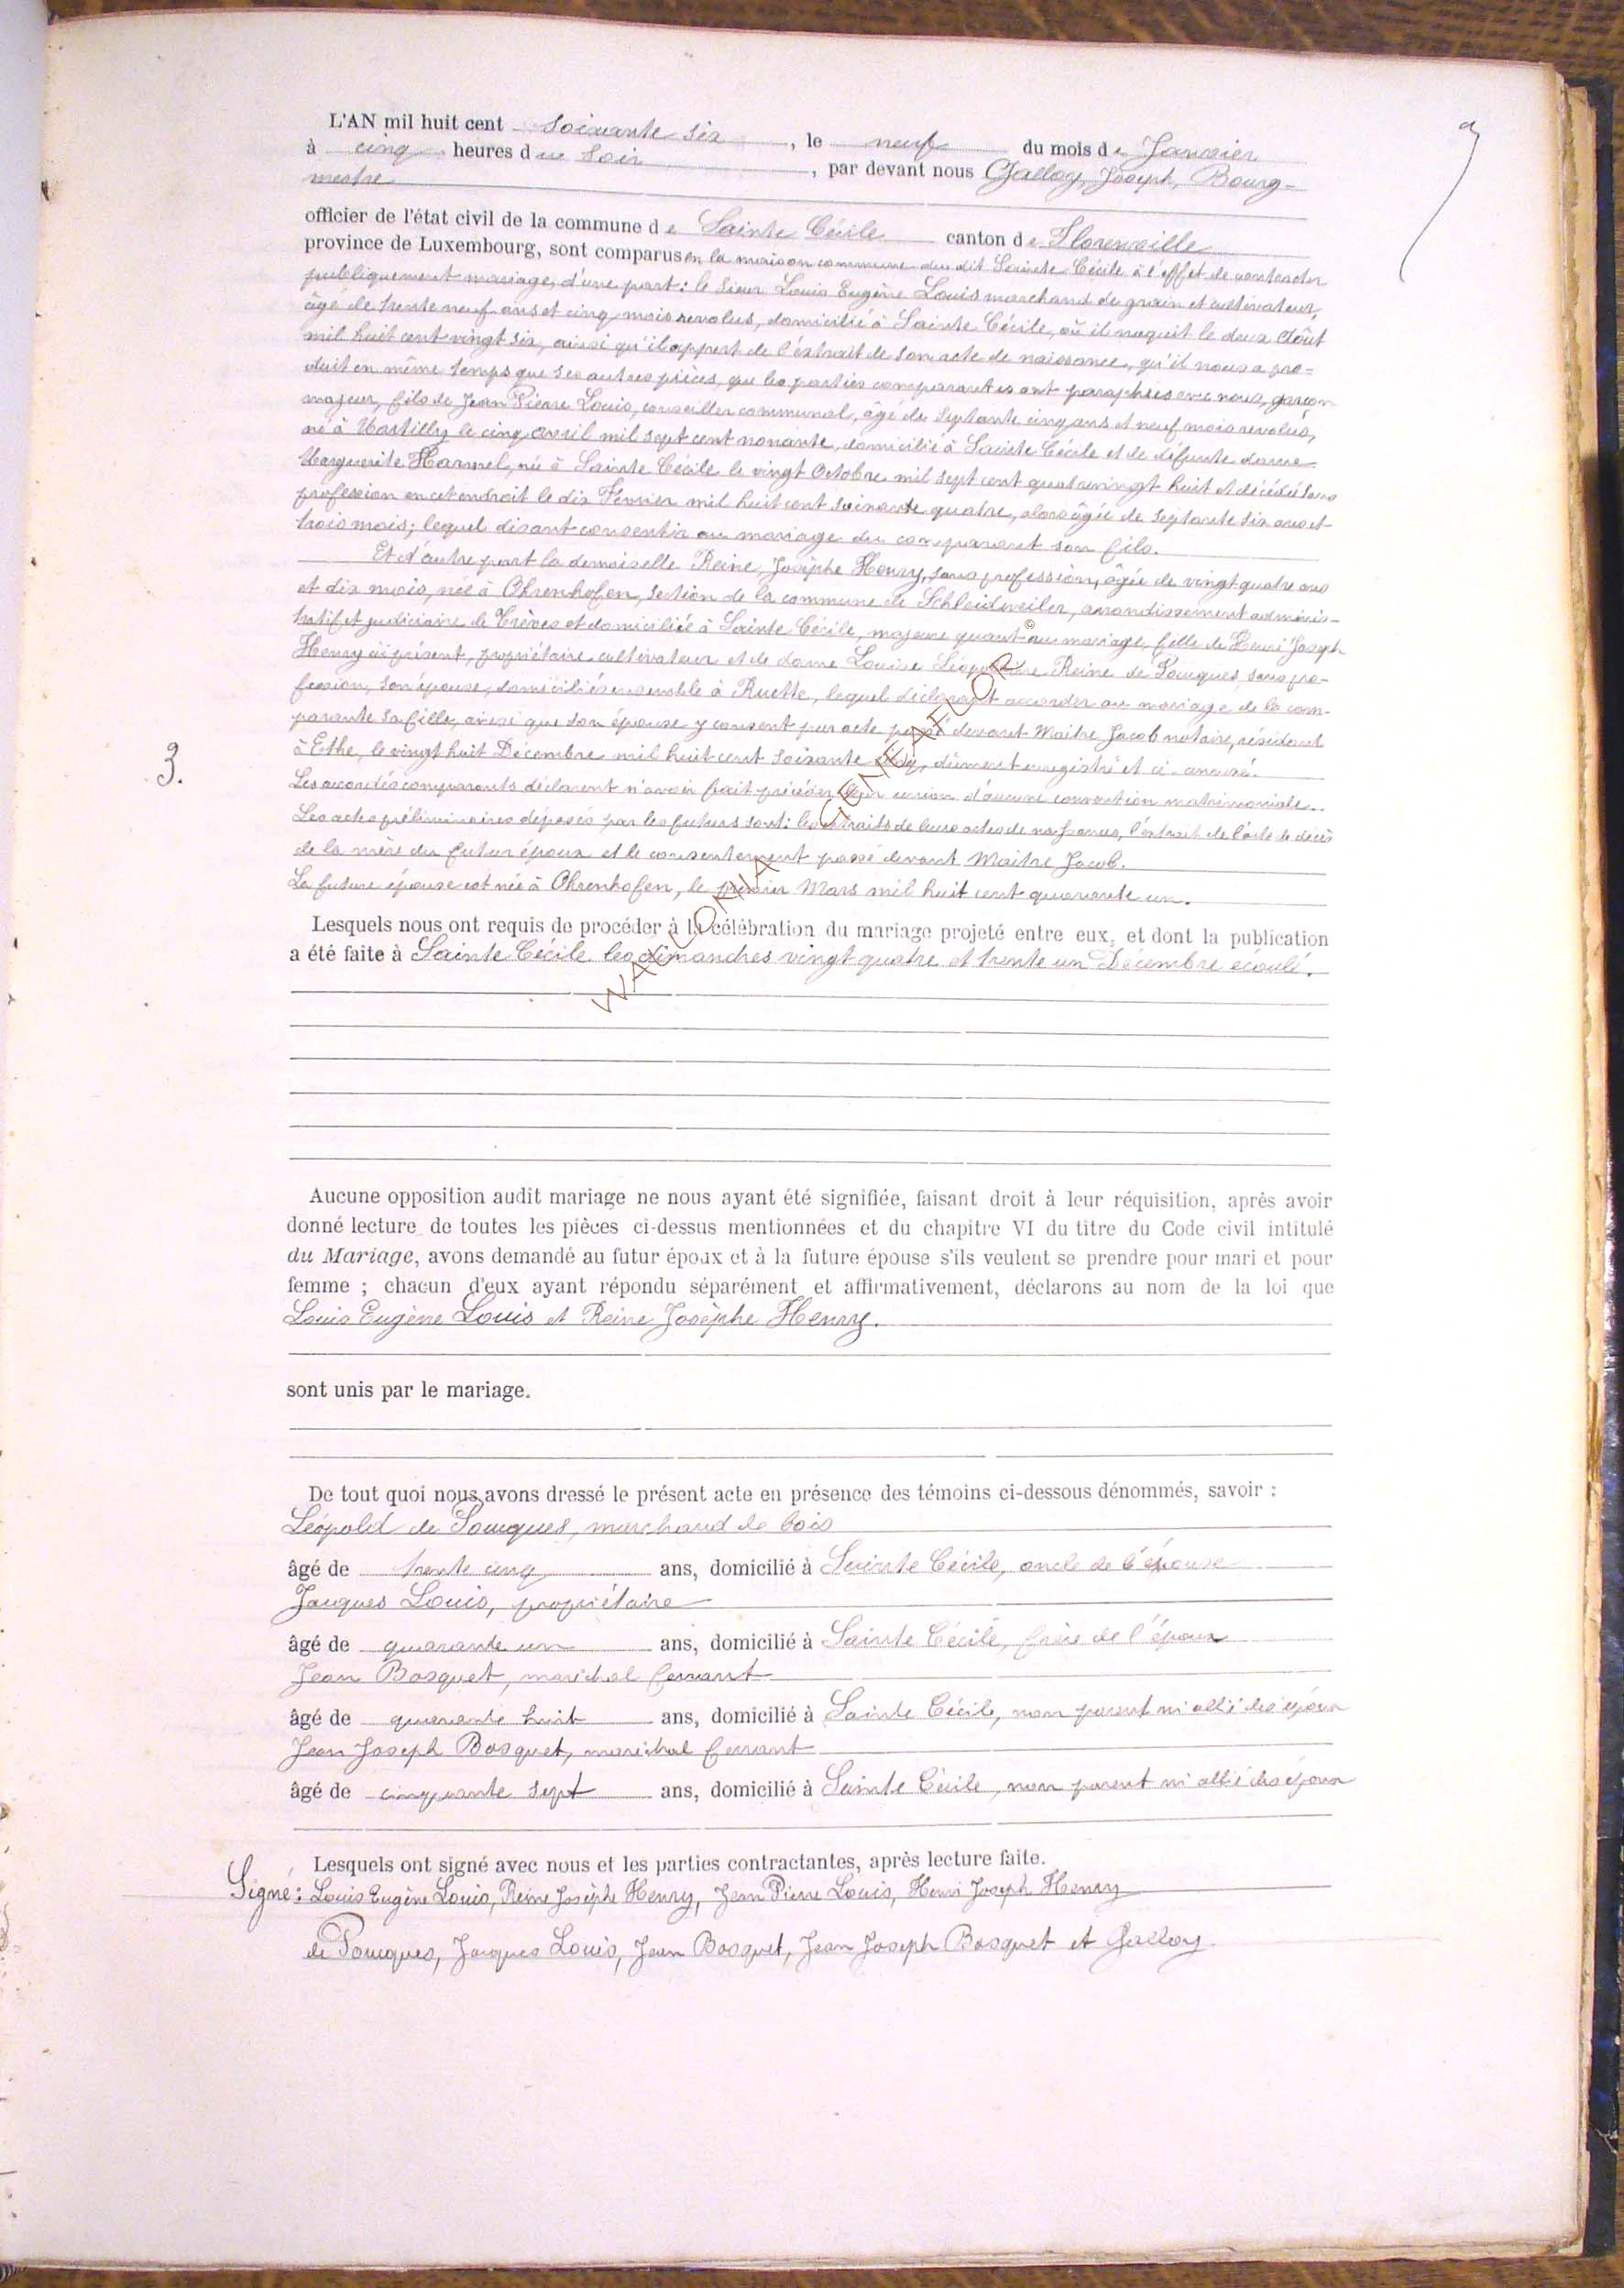 L'AN mil huit cent soixante six, le neuf du mois de Janvier
à cinq heures du soir, par devant nous Galloy, Joseph, Bourg-
mestre
officier de l'état civil de la commune de Sainte Cécile canton de Florenville
province de Luxembourg, sont comparus en la maison commune du dit Sainte Cécile à l'effet de contracter
publiquement mariage, d'une part: le Sieur Louis Eugène Louis marchand de grain et cultivateur,
âgé de trente neuf ans et cinq mois revolus, domicilié à Sainte Cécile, où il naquit le deux Août
mil huit cent vingt six, ainsi qu'il appert de l'extrait de son acte de naissance, qu'il nous a pro-
duit en même temps que ses autres pièces, que les parties comparantes ont paraphées avec nous, garçon
majeur, fils de Jean Pierre Louis, conseiller communal, âgé de septante cinq ans et neuf mois revolus,
né à le cinq avril mil sept cent nonante, domicilié à Sainte Cécile et de défunte dame
Marguerite Harmel, née à Sainte Cécile le vingt Octobre mil sept cent quatrevingt huit et décédée sans
profession en cet endroit le dix Février mil huit cent soixante quatre, alors âgée de septante six ans et
trois mois; lequel disant consentir au mariage du comparant son fils.
Et d'autre part la demoiselle Reine, Josèphe Henry, sans profession, âgée de vingt quatre ans
et dix mois, née à Ohrenhofen, section de la commune de Schleidweiler, arrondissement adminis-
tratif et judiciaire de Trèves et domiciliée à Sainte Cécile, majeure quant au mariage, fille de Henri Joseph
Henry ici présent, propriétaire cultivateur et de dame Louise Léopoldine Reine de Pouques, sans pro-
fession, son épouse, domiciliés ensemble à Ruette, lequel déclarant accorder au mariage de la com-
parante sa fille, ainsi que son épouse y consent par acte passé devant Maître Jacob notaire, résidant
à Ethe, le vingt huit Décembre mil huit cent soixante cinq, dûment enregistré et ci-annexé.
Les accordés comparants déclarent n'avoir fait précéder leur union d'aucune convention matrimoniale.
Les actes préliminaires déposés par les futurs sont: les extraits de leurs actes de naissance, l'extrait de l'acte de décès
de la mère du futur époux et le consentement passé devant Maître Jacob.
La future épouse est née à Ohrenhofen, le premier Mars mil huit cent quarante un.
3.
WALLONIA GENEAFLOR ©
Lesquels nous ont requis de procéder à la célébration du mariage projeté entre eux, et dont la publication
a été faite à Sainte Cécile les dimanches vingt quatre et trente un Décembre écoulé.
Aucune opposition audit mariage ne nous ayant été signifiée, faisant droit à leur réquisition, après avoir
donné lecture de toutes les pièces ci-dessus mentionnées et du chapitre VI du titre du Code civil intitulé
du Mariage, avons demandé au futur époux et à la future épouse s'ils veulent se prendre pour mari et pour
femme ; chacun d'eux ayant répondu séparément et affirmativement, déclarons au nom de la loi que
Louis Eugène Louis et Reine Josèphe Henry.
sont unis par le mariage.
De tout quoi nous avons dressé le présent acte en présence des témoins ci-dessous dénommés, savoir :
Léopold de Pouques, marchand de bois
âgé de trente cinq ans, domicilié à Sainte Cécile, oncle de l'épouse
Jacques Louis, propriétaire
âgé de quarante un ans, domicilié à Sainte Cécile, frère de l'époux
Jean Bosquet, maréchal ferrant
âgé de quarante huit ans, domicilié à Sainte Cécile, non parent ni allié des époux
Jean Joseph Bosquet, maréchal ferrant
âgé de cinquante sept ans, domicilié à Sainte Cécile, non parent ni allié des époux
Lesquels ont signé avec nous et les parties contractantes, après lecture faite.
Signé: Louis Eugène Louis, Reine Josèphe Henry, Jean Pierre Louis, Henri Joseph Henry
de Pouques, Jacques Louis, Jean Bosquet, Jean Joseph Bosquet et Galloy